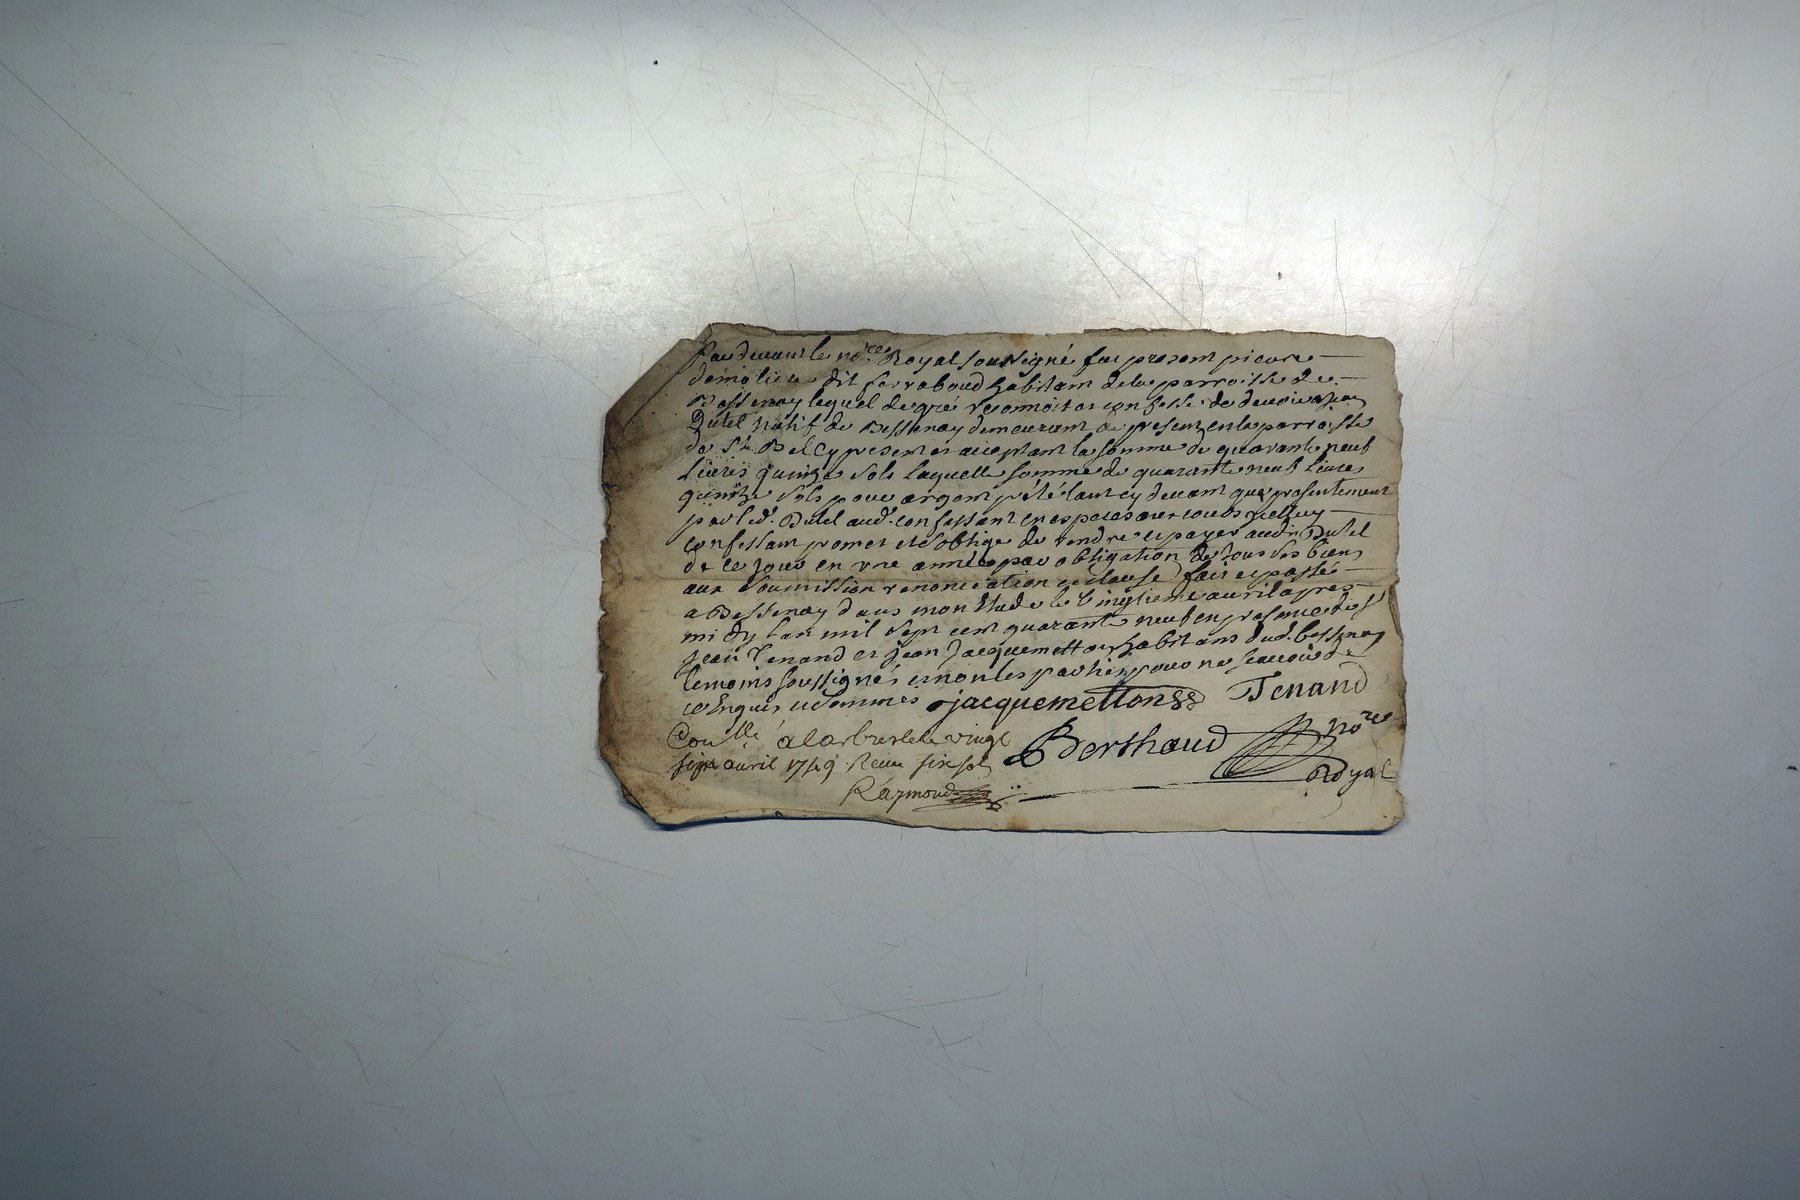 Pardevant le no.re Royal soussigné fut present pierre
demolière dit ferraboud habitant de la parroisse de
Bessenay lequel de gré reconnoit et confesse de devoir a jean
Dutel natif de Bessenay demeurant a present en la parroisse
de St Bel cy present et acceptant la somme de quarante neuf
Livres quinze sols laquelle somme de quarante neuf Livres
quinze sols pour argent prété tant cy devant que presentement
par led. Dutel aud. confessant en especes aier cours icelluy
confessant promet et s'oblige de rendre et payer audit Dutel
de ce jour en une année par obligation de tous ses biens
aux soumission renonciation et clause fait et passé
a Bessenay dans mon Etude le vingtieme avril apres
midy l'an mil sept cent quarante neuf en presence de Sr
jean Tenand et jean jacquemetton habitans dud. bessenay
temoins soussignés et non les parties pour ne scavoir de
ce Enquis et sommés jacquemetton Tenand
Con.llé a larbresle le vingt
sept avril 1749 Receu six sols
Berthaud no.re
Royal
Raymond